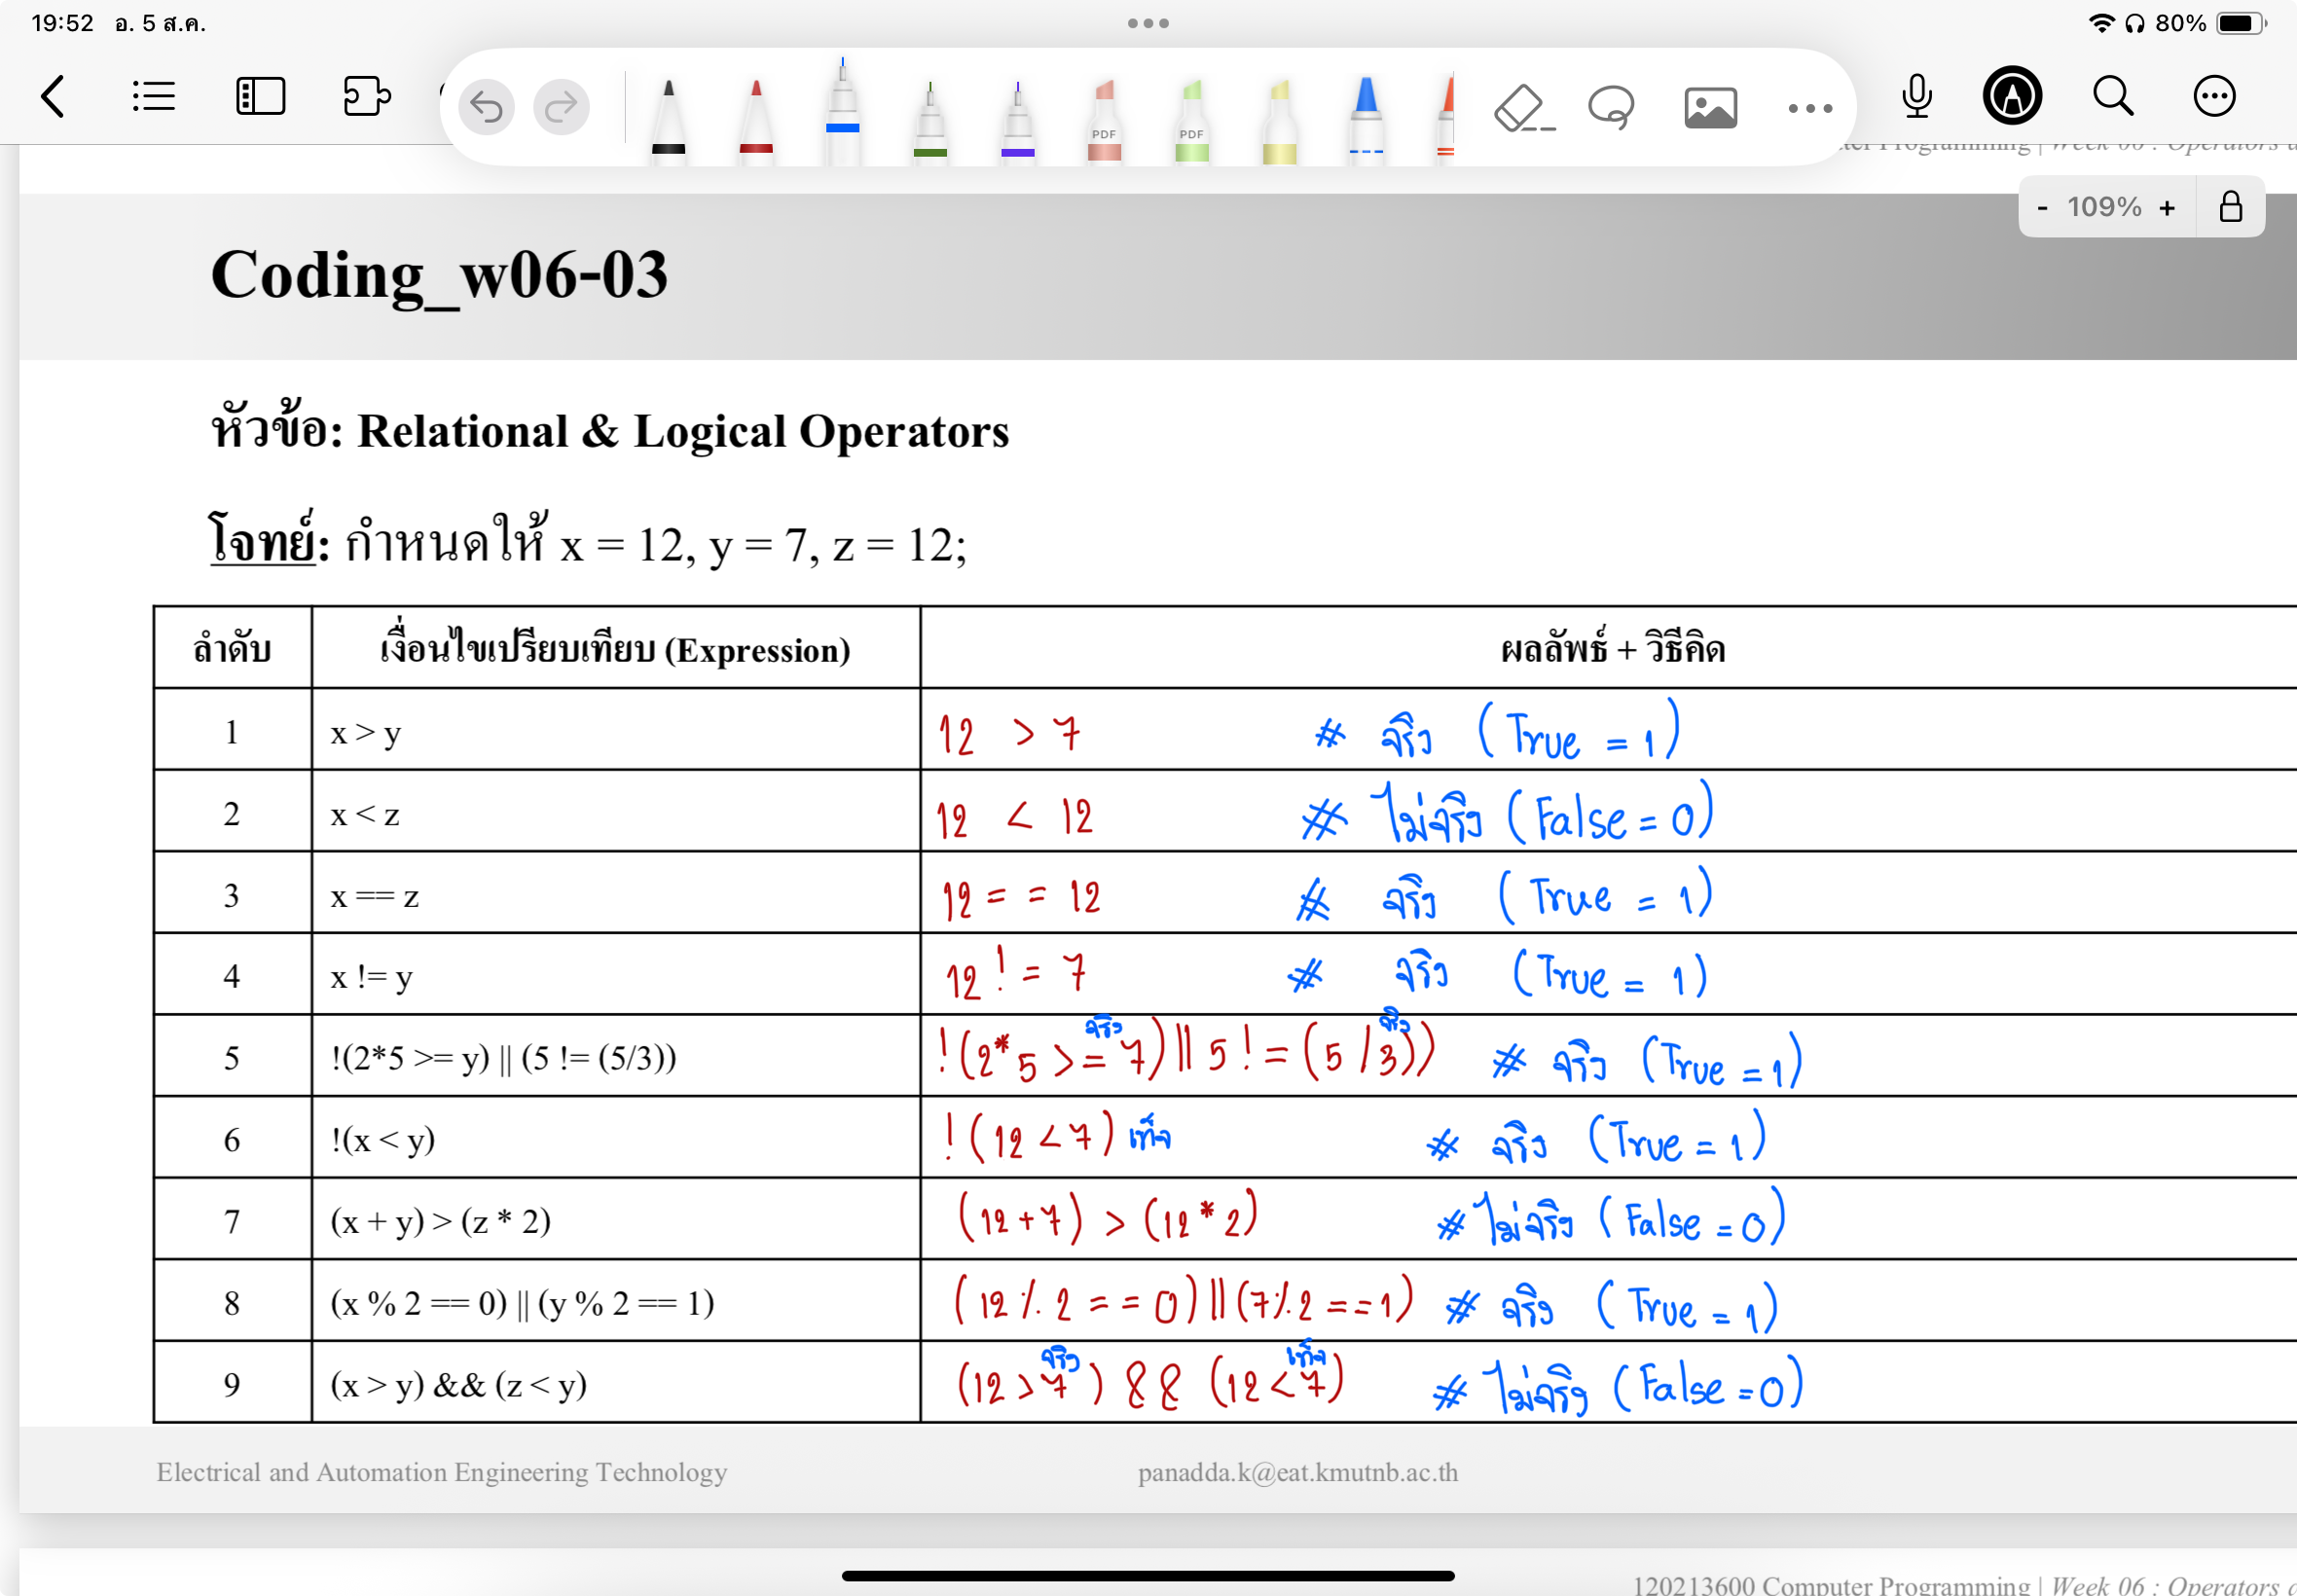 19:52 อ. 5 ส.ค.
80%
PDF PDF
- 109% +
Coding_w06-03
หัวข้อ: Relational & Logical Operators
โจทย์: กำหนดให้ x = 12, y = 7, z = 12;
ลำดับ เงื่อนไขเปรียบเทียบ (Expression) ผลลัพธ์ + วิธีคิด
1 x > y 12 > 7 # จริง (True = 1)
2 x < z 12 < 12 # ไม่จริง (False = 0)
3 x == z 12 = = 12 # จริง (True = 1)
4 x != y 12 ! = 7 # จริง (True = 1)
จริง จริง
5 !(2*5 >= y) || (5 != (5/3)) !(2*5 >= 7) || 5 != (5 / 3)) # จริง (True = 1)
6 !(x < y) ! (12 < 7) เท็จ # จริง (True = 1)
7 (x + y) > (z * 2) (12 + 7) > (12 * 2) # ไม่จริง (False = 0)
8 (x % 2 == 0) || (y % 2 == 1) (12 % 2 = = 0) || (7 % 2 = = 1) # จริง (True = 1)
จริง เท็จ
9 (x > y) && (z < y) (12 > 7) && (12 < 7) # ไม่จริง (False = 0)
Electrical and Automation Engineering Technology panadda.k@eat.kmutnb.ac.th
120213600 Computer Programming | Week 06 : Operators